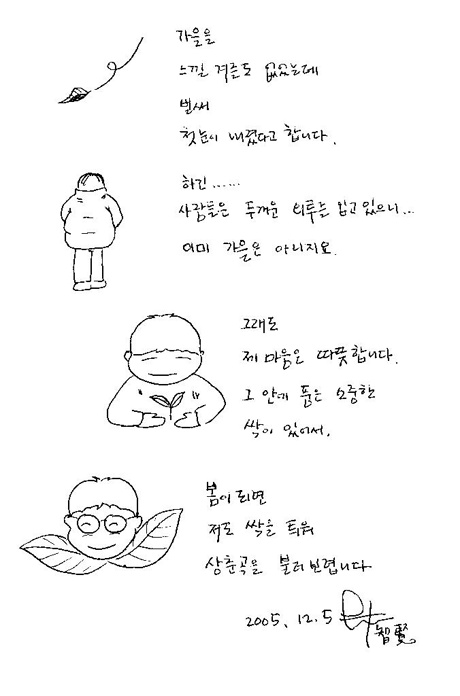 가을을
느낄 겨를도 없었는데
벌써
첫눈이 내렸다고 합니다.
하긴......
사람들은 두꺼운 외투를 입고 있으니...
이미 가을은 아니지요.
그래도
제 마음은 따뜻합니다.
그 안에 품은 소중한
싹이 있어서.
봄이 되면
저도 싹을 틔워
상춘곡을 불러 보렵니다
2005. 12. 5
智賢